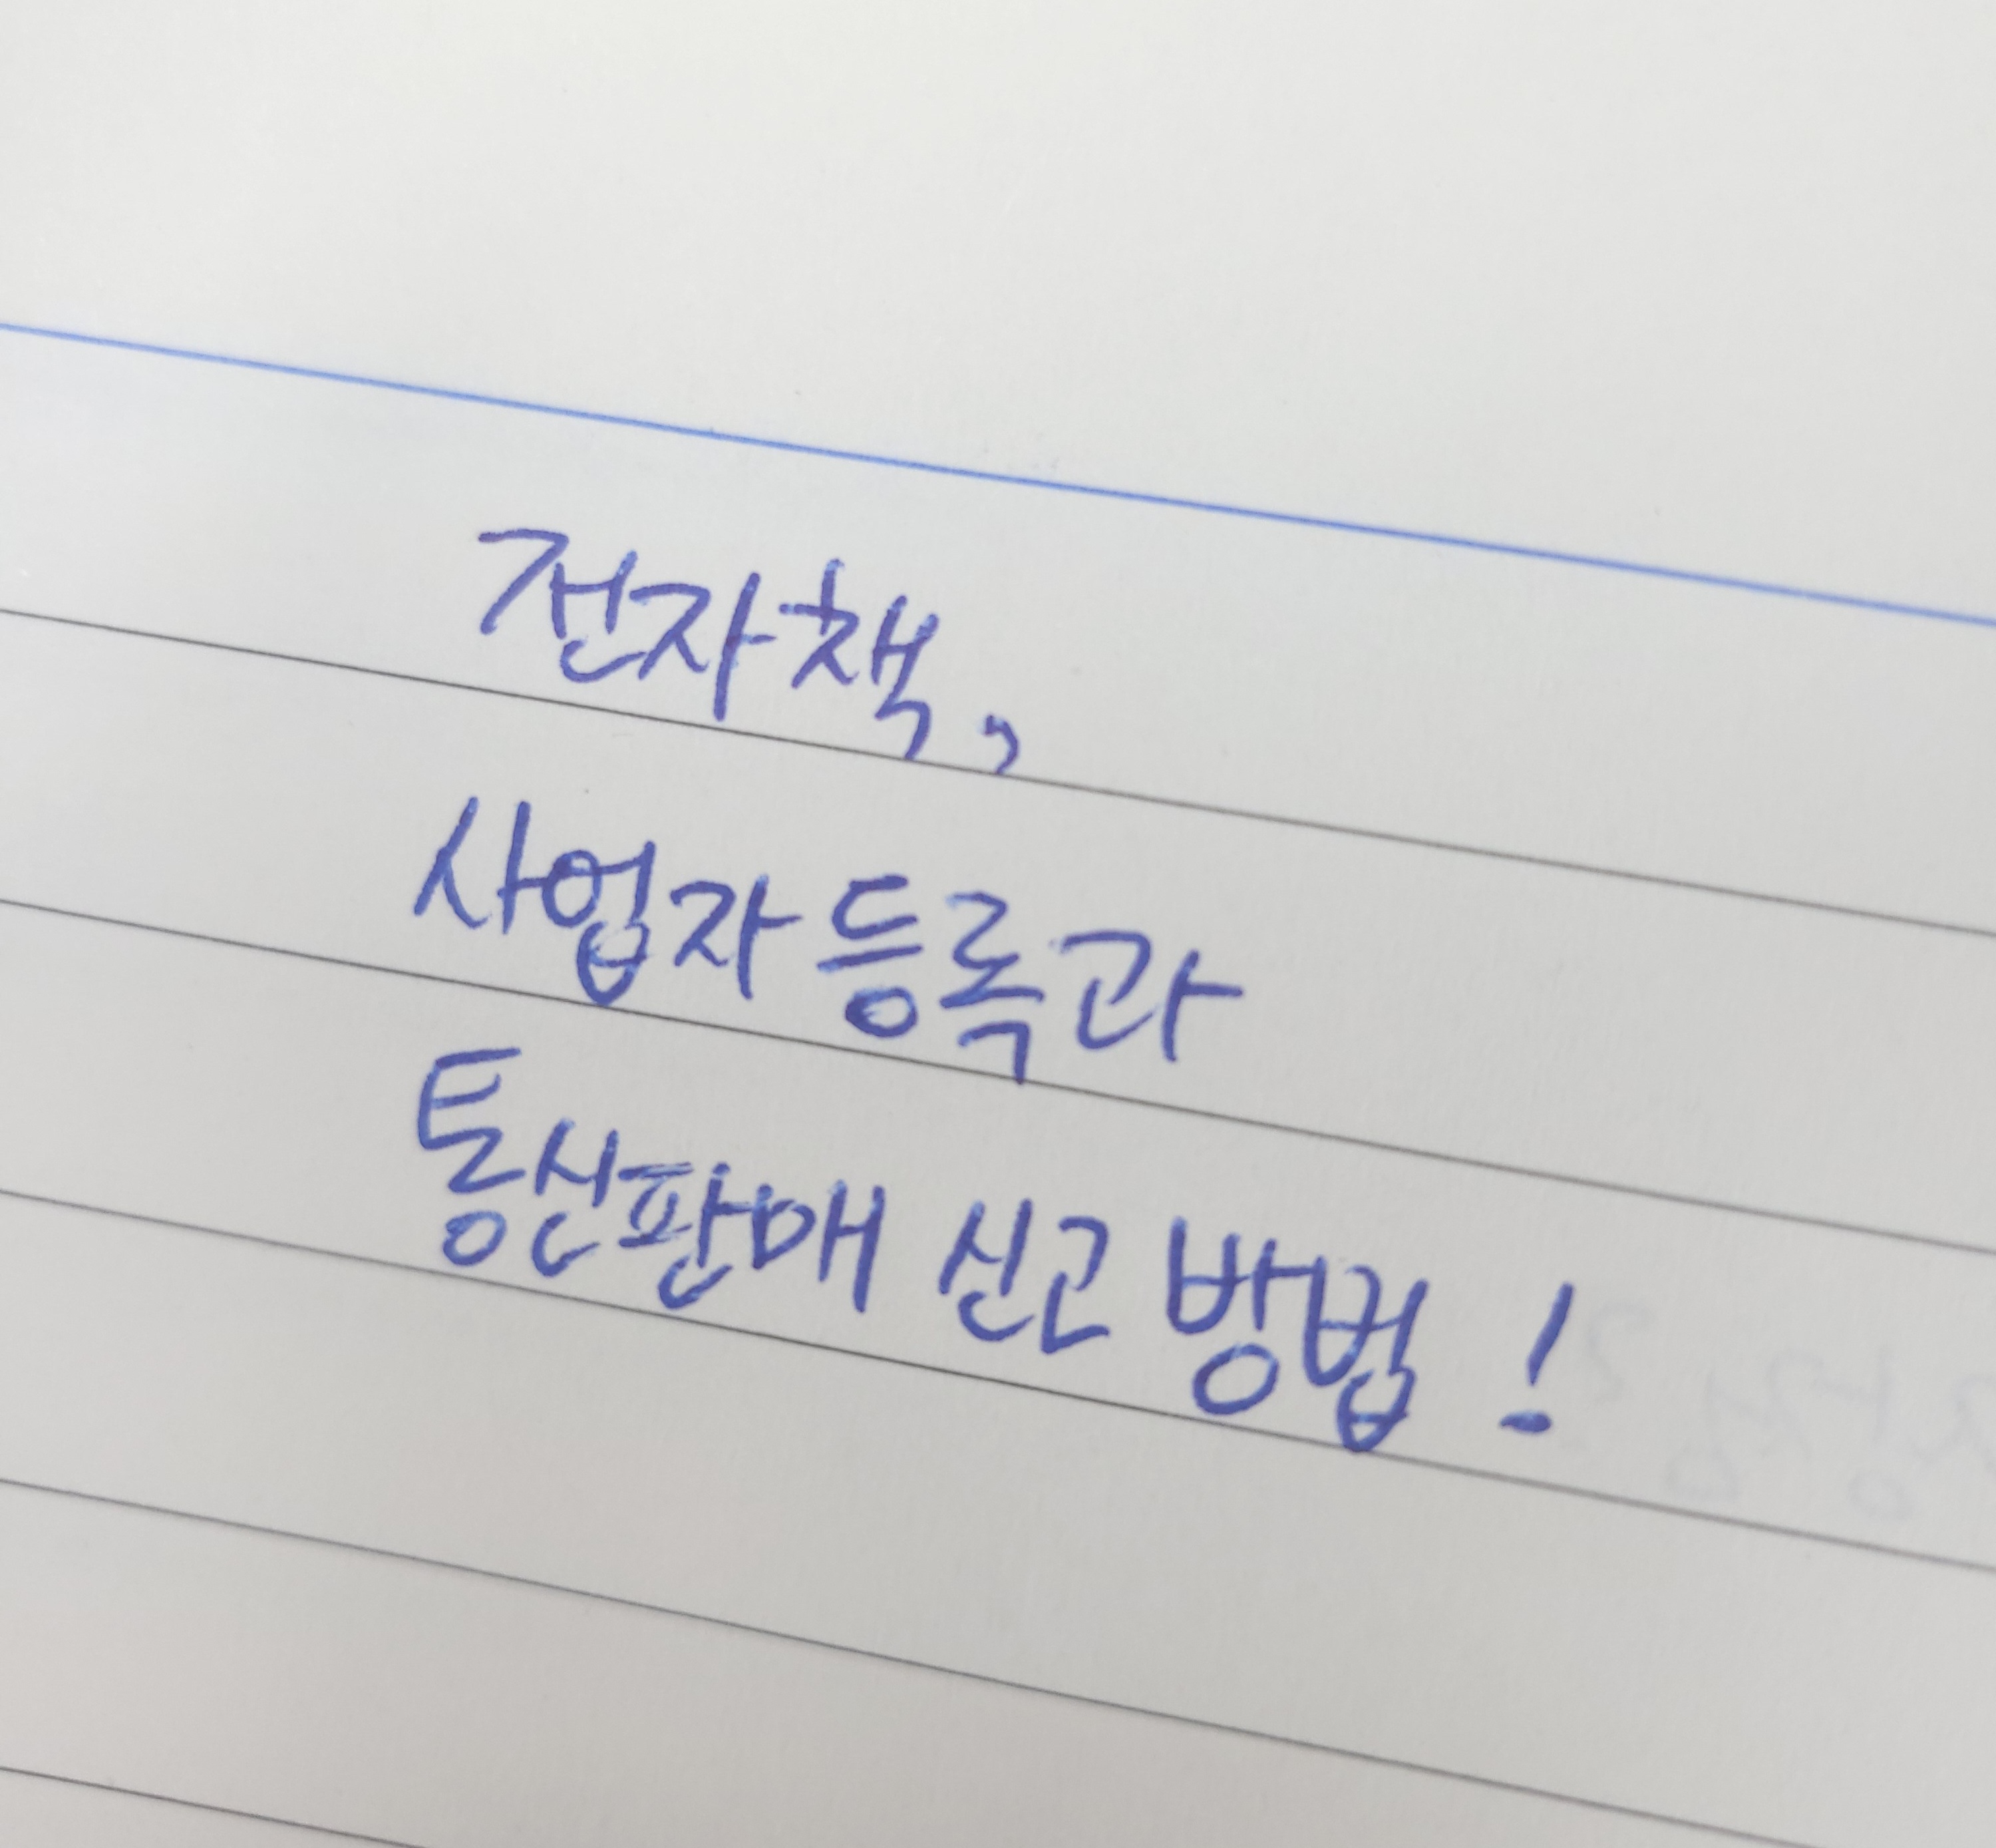 전자책,
사업자등록과
통신판매 신고 방법!